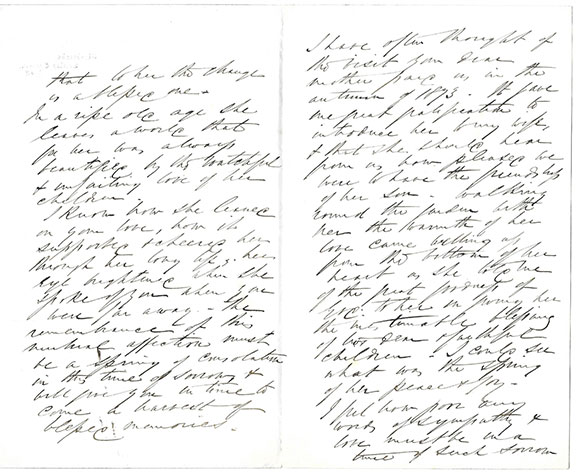 that to her the change
is a blessed one.
In a ripe old age she
leaves a world that
for her was always
beautified by the watchful
& unfailing love of her
children.
I know how she leaned
on your love, how it
supported & cheered her
through her long life; her
eye brightened when she
spoke of you when you
were far away. – The
remembrance of this
mutual affection must
be a spring of consolation
in this time of sorrow &
will give you in time to
come a harvest of
blessed memories.
I have often thought of
the visit your dear
mother paid us in the
autumn of 1873. It gave
me great gratification to
introduce her to my wife
& that she should hear
from us how pleased we
were to have the friendship
of her son. Walking
round the garden with
her the warmth of her
love came welling up
from the bottom of her
heart as she told me
of the great goodness of
God to her in giving her
the inestimable blessing
of two dear & faithful
children – I could see
what was the spring
of her peace & joy –
I feel how poor any
words of sympathy &
love must be in a
time of such sorrow